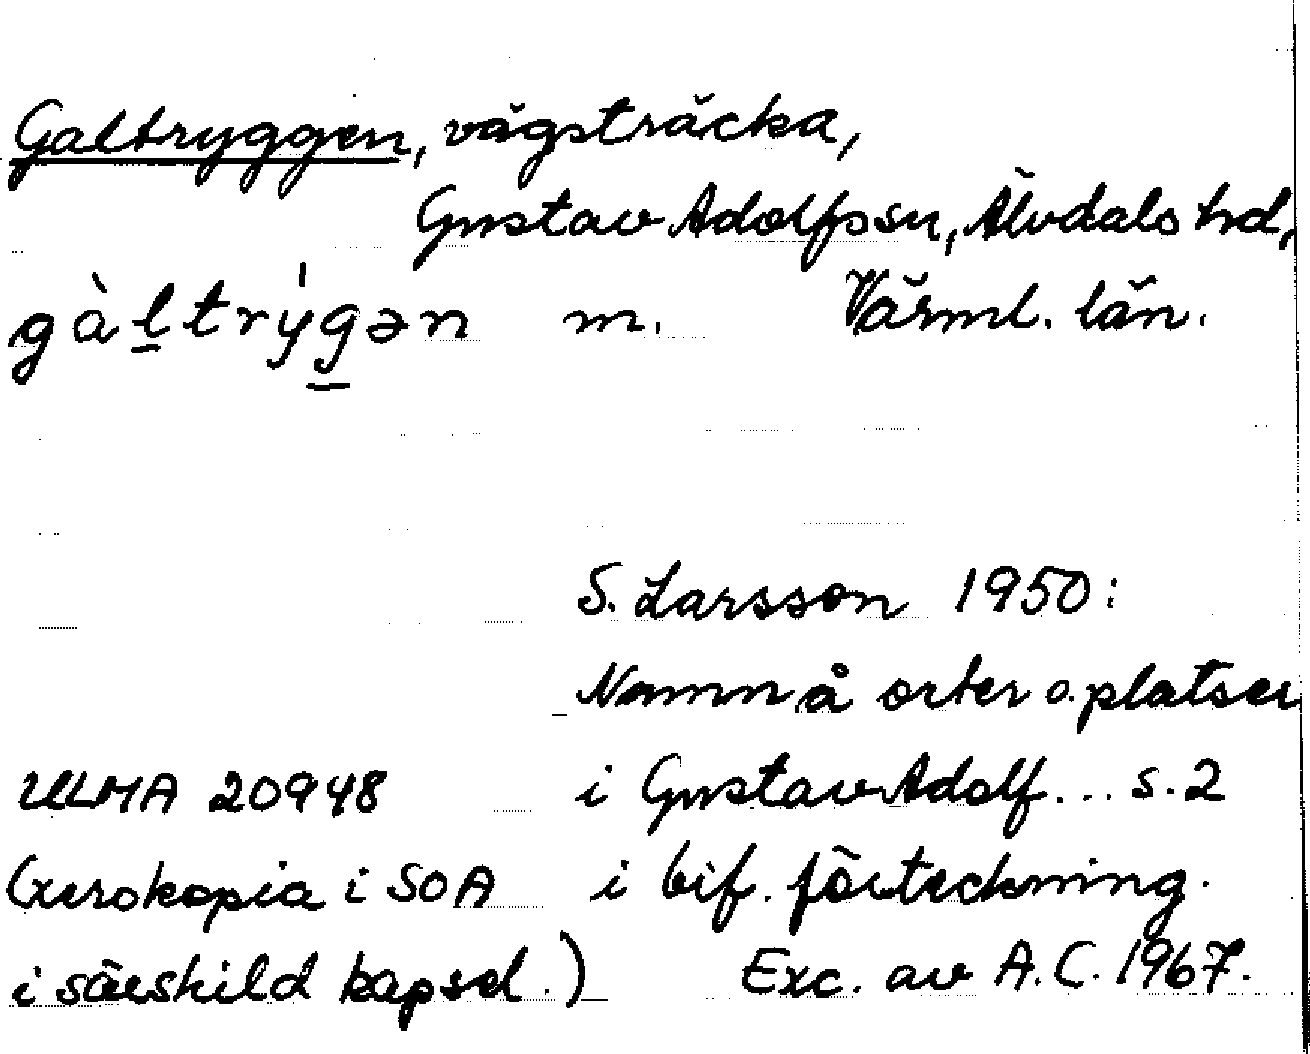 Galtryggen, vägsträcka,
Gustav Adolfs sn, Älvdals hd,
gàl̲trýg̲ən m. Värml. län.
S. Larsson 1950:
Namn å orter o. platser
ULMA 20948 i Gustav Adolf... s. 2
(xerokopia i SOA i bif. förteckning.
i särskild kapsel.) Exc. av A. C. 1967.